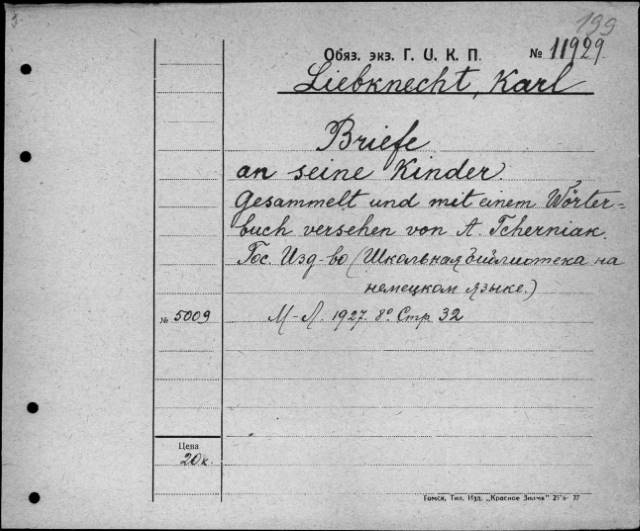 199
Обяз. экз. Г. Ц. К. П. № 11929.
Liebknecht, Karl
Briefe
an seine Kinder.
Gesammelt und mit einem Wörter=
buch versehen von A. Tcherniak.
Гос. Изд-во (Школьная библиотека на
немецком языке.)
№ 5009
М-Л. 1927. 8° Стр 32
Цена
20 к.
Гомск, Тип. Изд. „Красное Знамя"